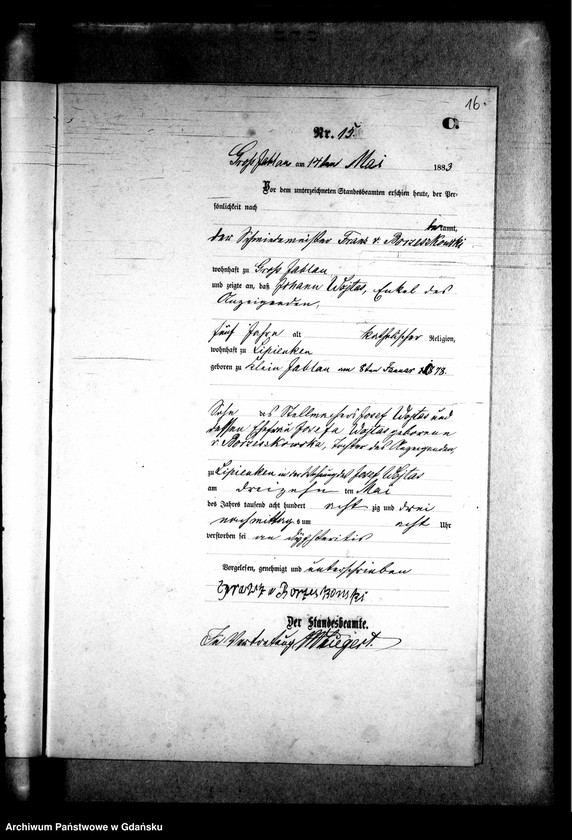 16.
C.
Nr. 15.
Groß Jablau am 14ten Mai 1883
Vor dem unterzeichneten Standesbeamten erschien heute, der Per-
sönlichkeit nach
bekannt,
der Schmiedemeister Franz v. Borzeszkowski
wohnhaft zu Groß Jablau
und zeigte an, daß Johann Wojtas, Enkel des
Anzeigenden,
fünf Jahre alt katholischer Religion,
wohnhaft zu Lipienken
geboren zu Klein Jablau am 8ten Januar 1878.
Sohn des Stellmachers Josef Wojtas und
dessen Ehefrau Josefa Wojtas geborene
v. Borzeszkowska, Tochter des Anzeigenden,
zu Lipienken in der Wohnung des Josef Wojtas
am dreizehnten Mai
des Jahres tausend acht hundert achtzig und drei
nachmittags um acht Uhr
verstorben sei an
Vorgelesen, genehmigt und unterschrieben
v Borzeszkowski
Der Standesbeamte.
In Vertretung
Archiwum Państwowe w Gdańsku